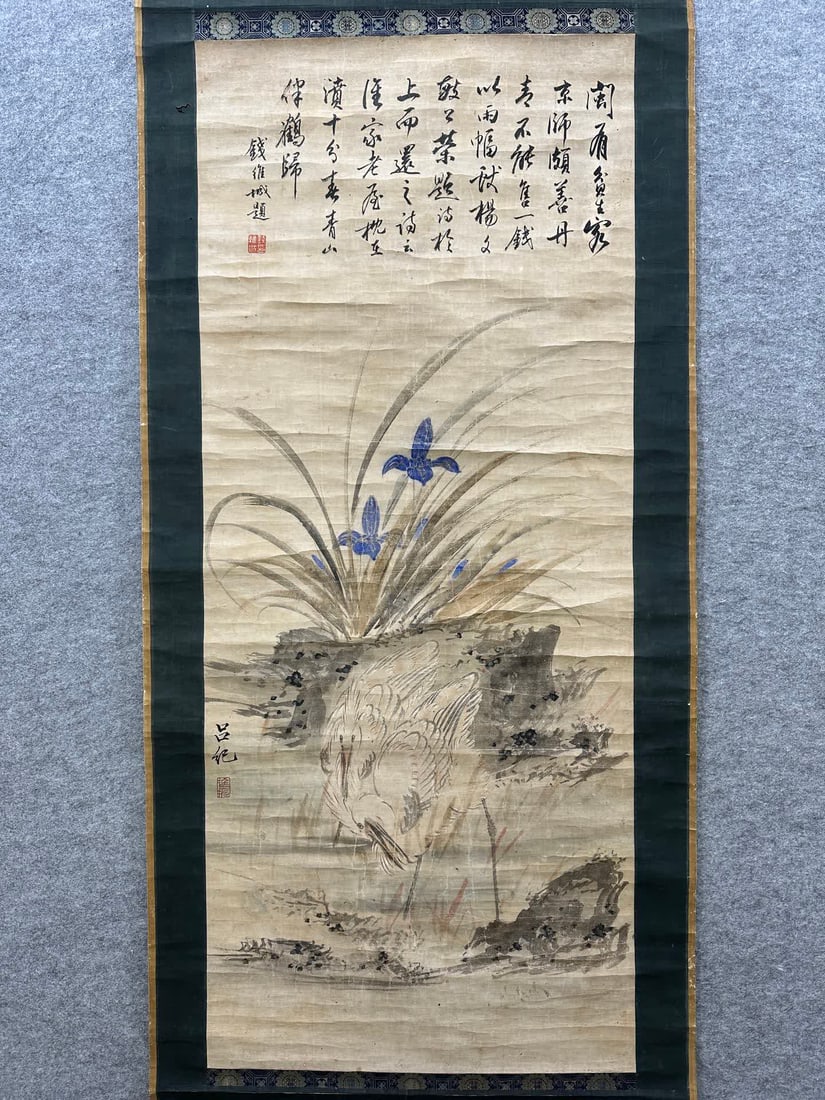 閩有貧生客
京師頗善丹
青不能售一錢
以兩幅獻楊文
敏公榮題詩於
上而還之詩云
誰家老屋枕
濆十分春青山
伴鶴歸
錢維城題
呂紀